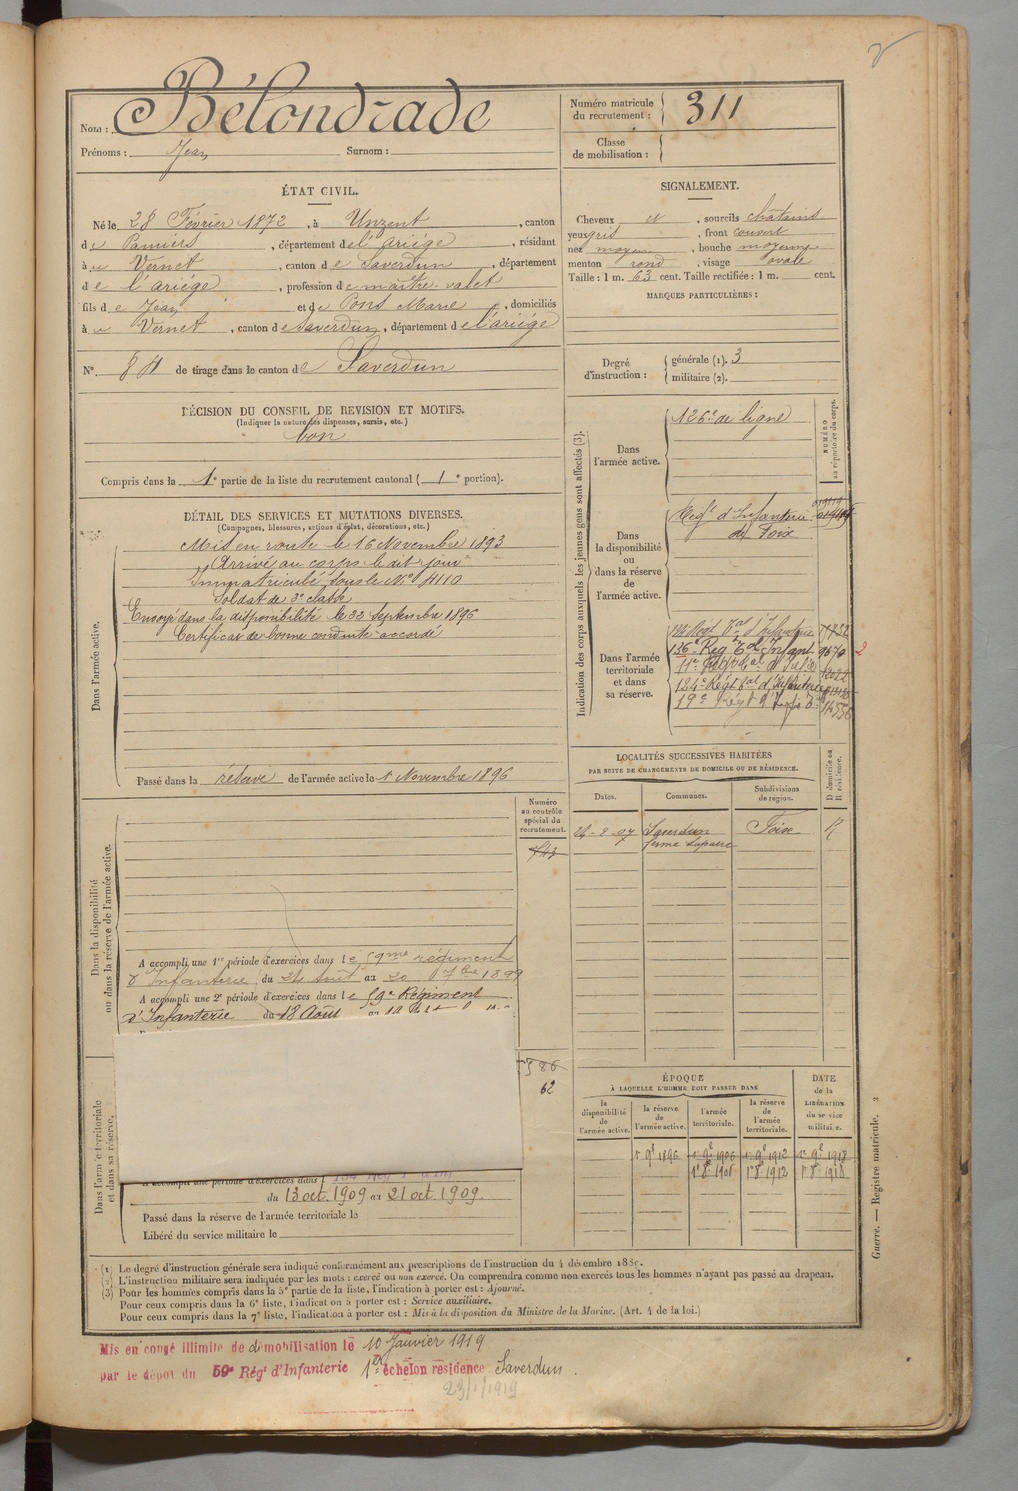 Nom : Bélondrade
Prénoms : Jean Surnom :
Numéro matricule du recrutement : 311
Classe de mobilisation :
ÉTAT CIVIL.
Né le 28 Février 1872, à Unzent, canton
de Pamiers, département de l'ariége, résidant
à u Vernet, canton de Saverdun, département
de l'ariége, profession de maitre-valet
fils de Jean et de Pons Marie, domiciliés
à u Vernet, canton de Saverdun, département de l'ariége
N°. 84 de tirage dans le canton de Saverdun
SIGNALEMENT.
Cheveux et, sourcils châtains
yeux gris, front couvert
nez moyen, bouche moyenne
menton rond, visage ovale
Taille : 1 m. 63 cent. Taille rectifiée : 1 m. cent.
MARQUES PARTICULIÈRES :
Degré d'instruction : générale (1). 3
militaire (2).
DÉCISION DU CONSEIL DE REVISION ET MOTIFS.
(Indiquer la nature des dispenses, sursis, etc.)
bon
Compris dans la 1e partie de la liste du recrutement cantonal (1e portion).
DÉTAIL DES SERVICES ET MUTATIONS DIVERSES.
(Campagnes, blessures, actions d'éclat, décorations, etc.)
Dans l'armée active.
Mis en route le 16 Novembre 1893
Arrivé au corps le dit jour
Immatriculé sous le N° 4110
Soldat de 2e classe
Envoyé dans la disponibilité le 22 Septembre 1896
Certificat de bonne conduite accordé
Passé dans la réserve de l'armée active le 1 Novembre 1896
Indication des corps auxquels les jeunes gens sont affectés (3).
NUMÉRO au répertoire du corps.
Dans l'armée active.
126e de ligne
Dans la disponibilité ou dans la réserve de l'armée active.
Regt d'Infanterie
de Foix
Dans l'armée territoriale et dans sa réserve.
136e Reg Tal Infant 9670 2
184e Régt tal d'Infanterie
19e 14556
LOCALITÉS SUCCESSIVES HABITÉES
PAR SUITE DE CHANGEMENTS DE DOMICILE OU DE RÉSIDENCE.
Dates. Communes. Subdivisions de région. D domicile ou R résidence.
24-2-07 Saverdun Foix R
ferme
Numéro au contrôle spécial du recrutement.
743
Dans la disponibilité ou dans la réserve de l'armée active.
A accompli une 1re période d'exercices dans le 59me régiment
d'Infanterie du 24 Août au 20 7bre 1899
A accompli une 2e période d'exercices dans le 59e Régiment
d'Infanterie du 18 Août au
62
Dans l'armée territoriale et dans sa réserve.
A accompli une période d'exercices dans l
du 13 oct. 1909 au 21 oct. 1909.
Passé dans la réserve de l'armée territoriale le
Libéré du service militaire le
ÉPOQUE
À LAQUELLE L'HOMME DOIT PASSER DANS
DATE de la LIBÉRATION du service militaire.
la disponibilité de l'armée active. la réserve de l'armée active. l'armée territoriale. la réserve de l'armée territoriale.
1r 9b 1896 1r 9b 1906 1r 9b 1912 1r 9b 1918
1r 8b 1906 1r 8b 1912 1r 8b 1918
(1) Le degré d'instruction générale sera indiqué conformément aux prescriptions de l'instruction du 4 décembre 1889.
(2) L'instruction militaire sera indiquée par les mots : exercé ou non exercé. On comprendra comme non exercés tous les hommes n'ayant pas passé au drapeau.
(3) Pour les hommes compris dans la 5e partie de la liste, l'indication à porter est : Ajourné.
Pour ceux compris dans la 6e liste, l'indication à porter est : Service auxiliaire.
Pour ceux compris dans la 7e liste, l'indication à porter est : Mis à la disposition du Ministre de la Marine. (Art. 4 de la loi.)
Guerre. — Registre matricule. 2
Mis en congé illimité de démobilisation le 10 Janvier 1919
par le dépôt du 59e Régt d'Infanterie 1er échelon résidence Saverdun.
23/1/1919